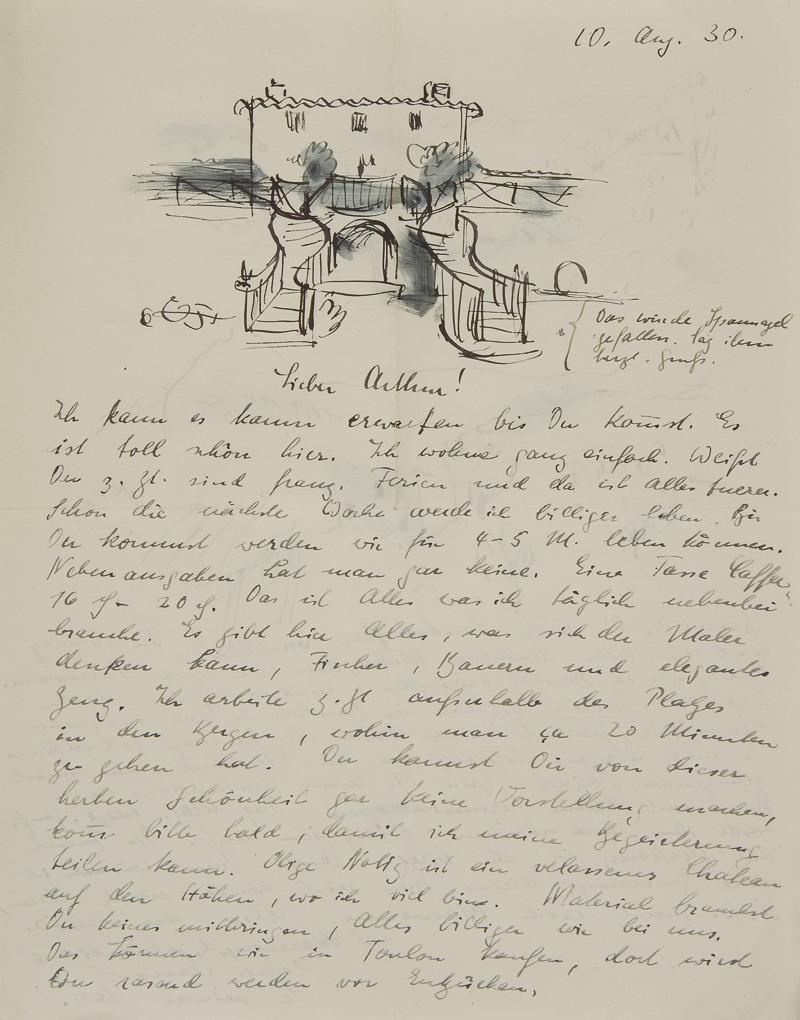 10. Aug. 30.
Das würde Spannagel
gefallen. Sag ihm
herzl. Gruß.
Lieber Arthur!
Ich kann es kaum erwarten bis Du kom̅st. Es
ist toll schön hier. Ich wohne ganz einfach. Weißt
Du z. Zt. sind franz. Ferien und da ist alles teuer.
Schon die nächste Woche werde ich billiger leben. Bis
Du kommst werden wir für 4-5 M. leben können.
Nebenausgaben hat man gar keine. Eine Tasse Caffee
16 ₰ - 20 ₰. Das ist Alles was ich täglich nebenbei
brauche. Es gibt hier Alles, was sich der Maler
denken kann, Fischer, Bauern und elegantes
Zeug. Ich arbeite z. Zt. außerhalb des Platzes
in den Bergen, wohin man ca 20 Minuten
zu gehen hat. Du kannst Dir von dieser
herben Schönheit gar keine Vorstellung machen,
kom̅ bitte bald, damit ich meine Begeisterung
teilen kann. Obige Notiz ist ein verlassenes Chateau
auf den Höhen, wo ich viel bin. Material brauchst
Du keines mitbringen, Alles billiger wie bei uns.
Das können wir in Toulon kaufen, dort wirst
Du rasend werden vor Entzücken.